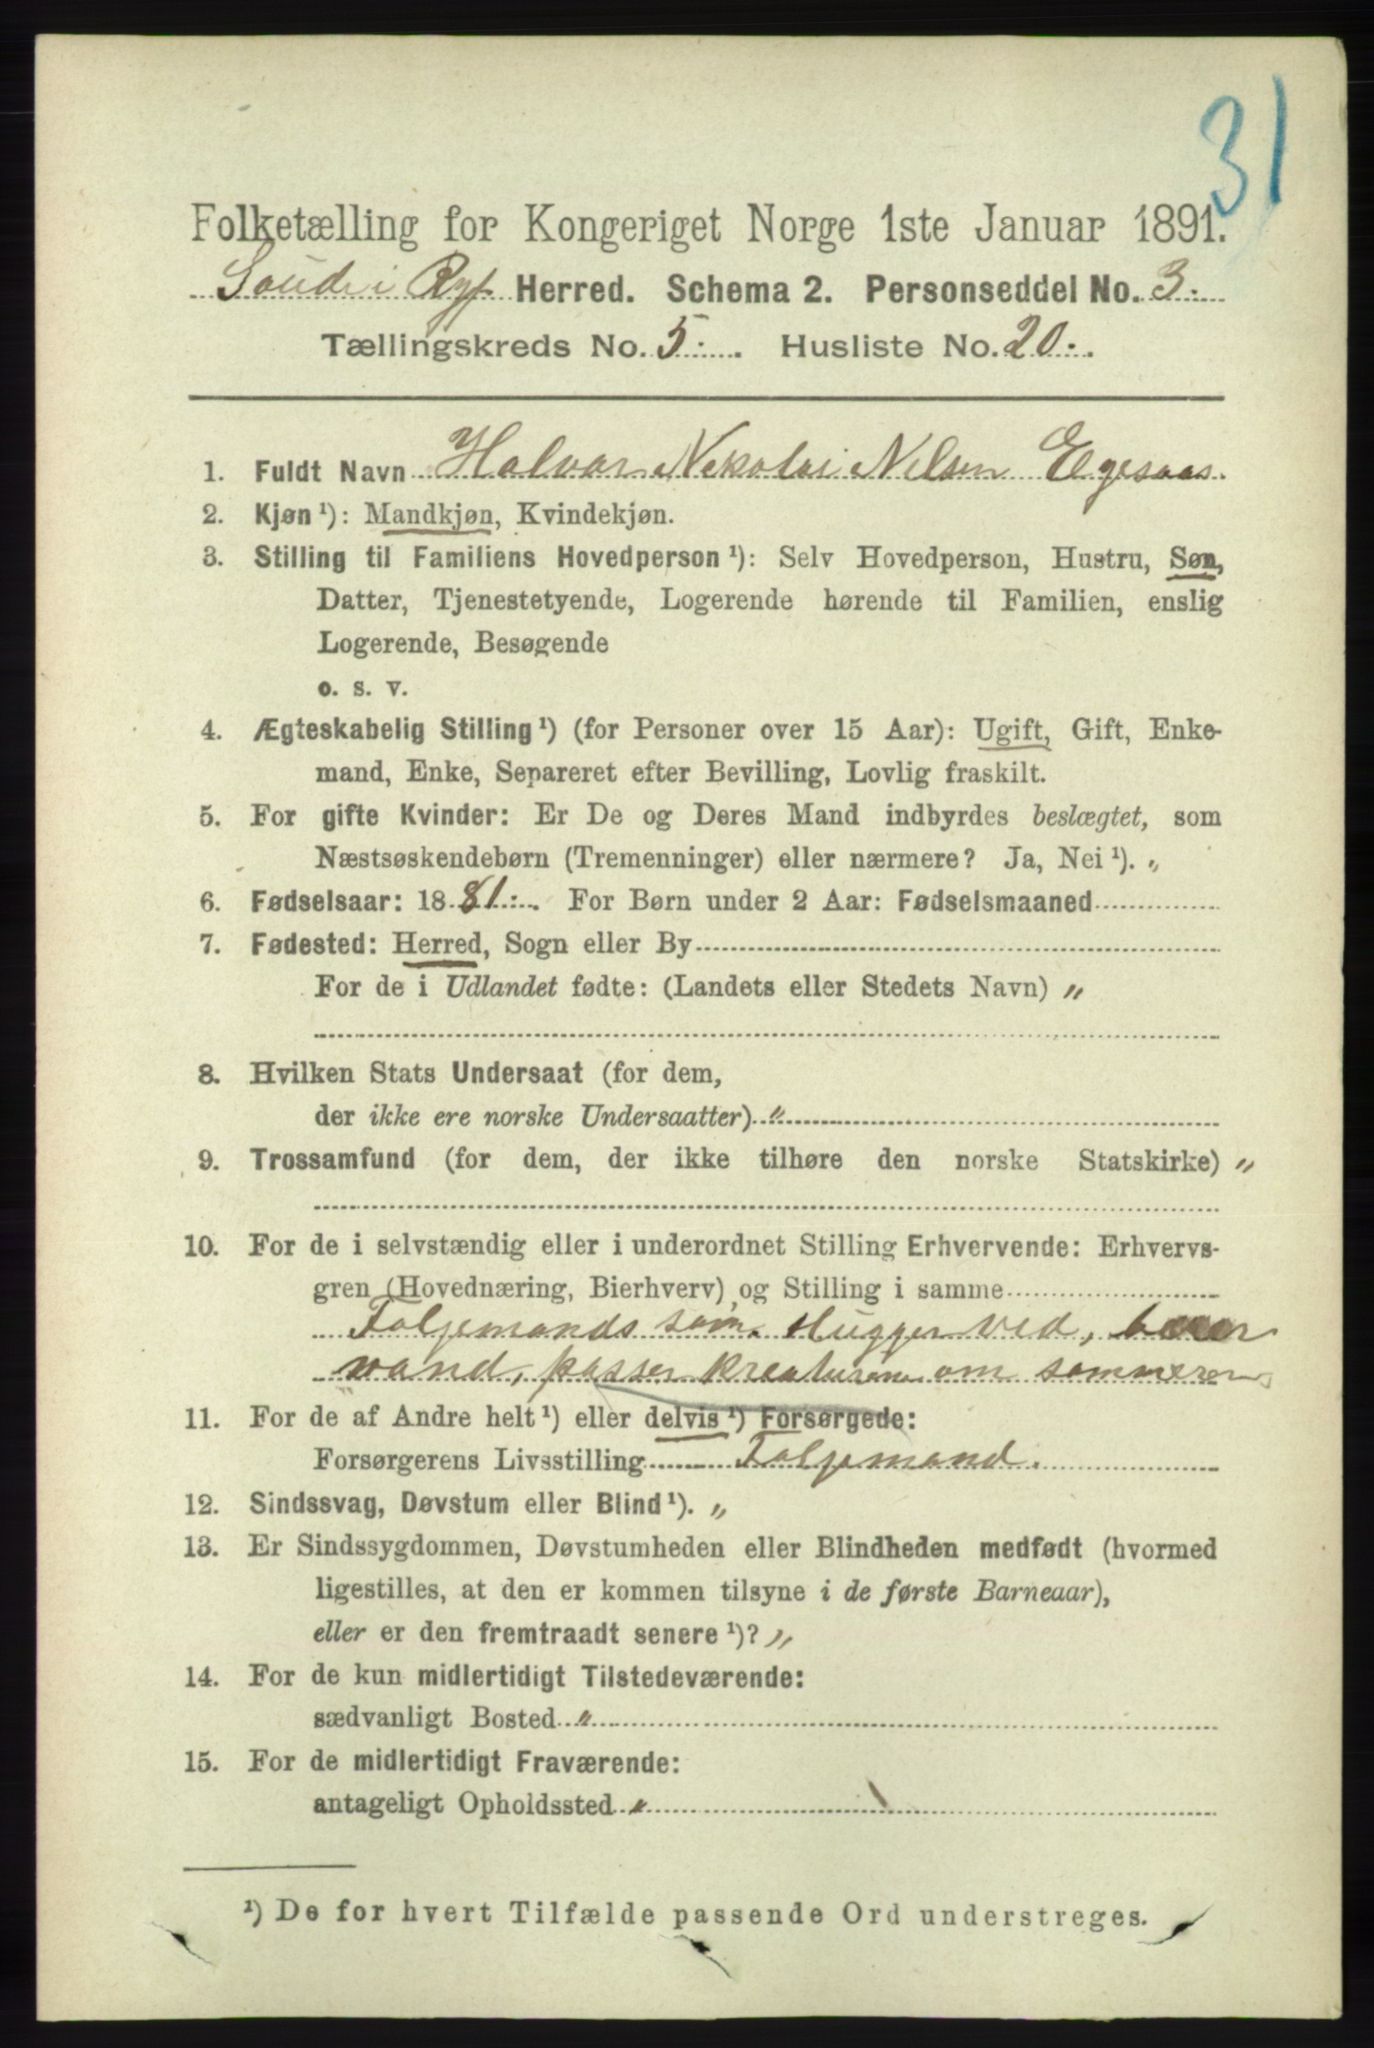 31
Folketælling for Kongeriget Norge 1ste Januar 1891.
Saude i Ryf. Herred. Schema 2. Personseddel No. 3.
Tællingskreds No. 5. Husliste No. 20.
1. Fuldt Navn Halvar Nikolai Nilsen Egesaas.
2. Kjøn ¹): Mandkjøn, Kvindekjøn.
3. Stilling til Familiens Hovedperson ¹): Selv Hovedperson, Hustru, Søn,
Datter, Tjenestetyende, Logerende hørende til Familien, enslig
Logerende, Besøgende
o. s. v.
4. Ægteskabelig Stilling ¹) (for Personer over 15 Aar): Ugift, Gift, Enke-
mand, Enke, Separeret efter Bevilling, Lovlig fraskilt.
5. For gifte Kvinder: Er De og Deres Mand indbyrdes beslægtet, som
Næstsøskendebørn (Tremenninger) eller nærmere? Ja, Nei ¹). „
6. Fødselsaar: 1881. For Børn under 2 Aar: Fødselsmaaned
7. Fødested: Herred, Sogn eller By
For de i Udlandet fødte: (Landets eller Stedets Navn) „
8. Hvilken Stats Undersaat (for dem,
der ikke ere norske Undersaatter) „
9. Trossamfund (for dem, der ikke tilhøre den norske Statskirke) „
10. For de i selvstændig eller i underordnet Stilling Erhvervende: Erhvervs-
gren (Hovednæring, Bierhverv) og Stilling i samme
Foljemands søn. Hugger ved, bærer
vand, passer kreaturene om sommeren
11. For de af Andre helt ¹) eller delvis ¹) Forsørgede:
Forsørgerens Livsstilling Foljemand.
12. Sindssvag, Døvstum eller Blind ¹). „
13. Er Sindssygdommen, Døvstumheden eller Blindheden medfødt (hvormed
ligestilles, at den er kommen tilsyne i de første Barneaar),
eller er den fremtraadt senere ¹)? „
14. For de kun midlertidigt Tilstedeværende:
sædvanligt Bosted „
15. For de midlertidigt Fraværende:
antageligt Opholdssted „
¹) De for hvert Tilfælde passende Ord understreges.